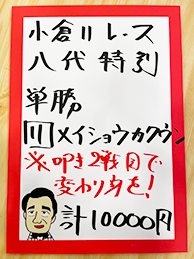 小倉11レース
八代特別
単勝
11メイショウカクウン
※叩き2戦目で
変わり身を!
計10000円